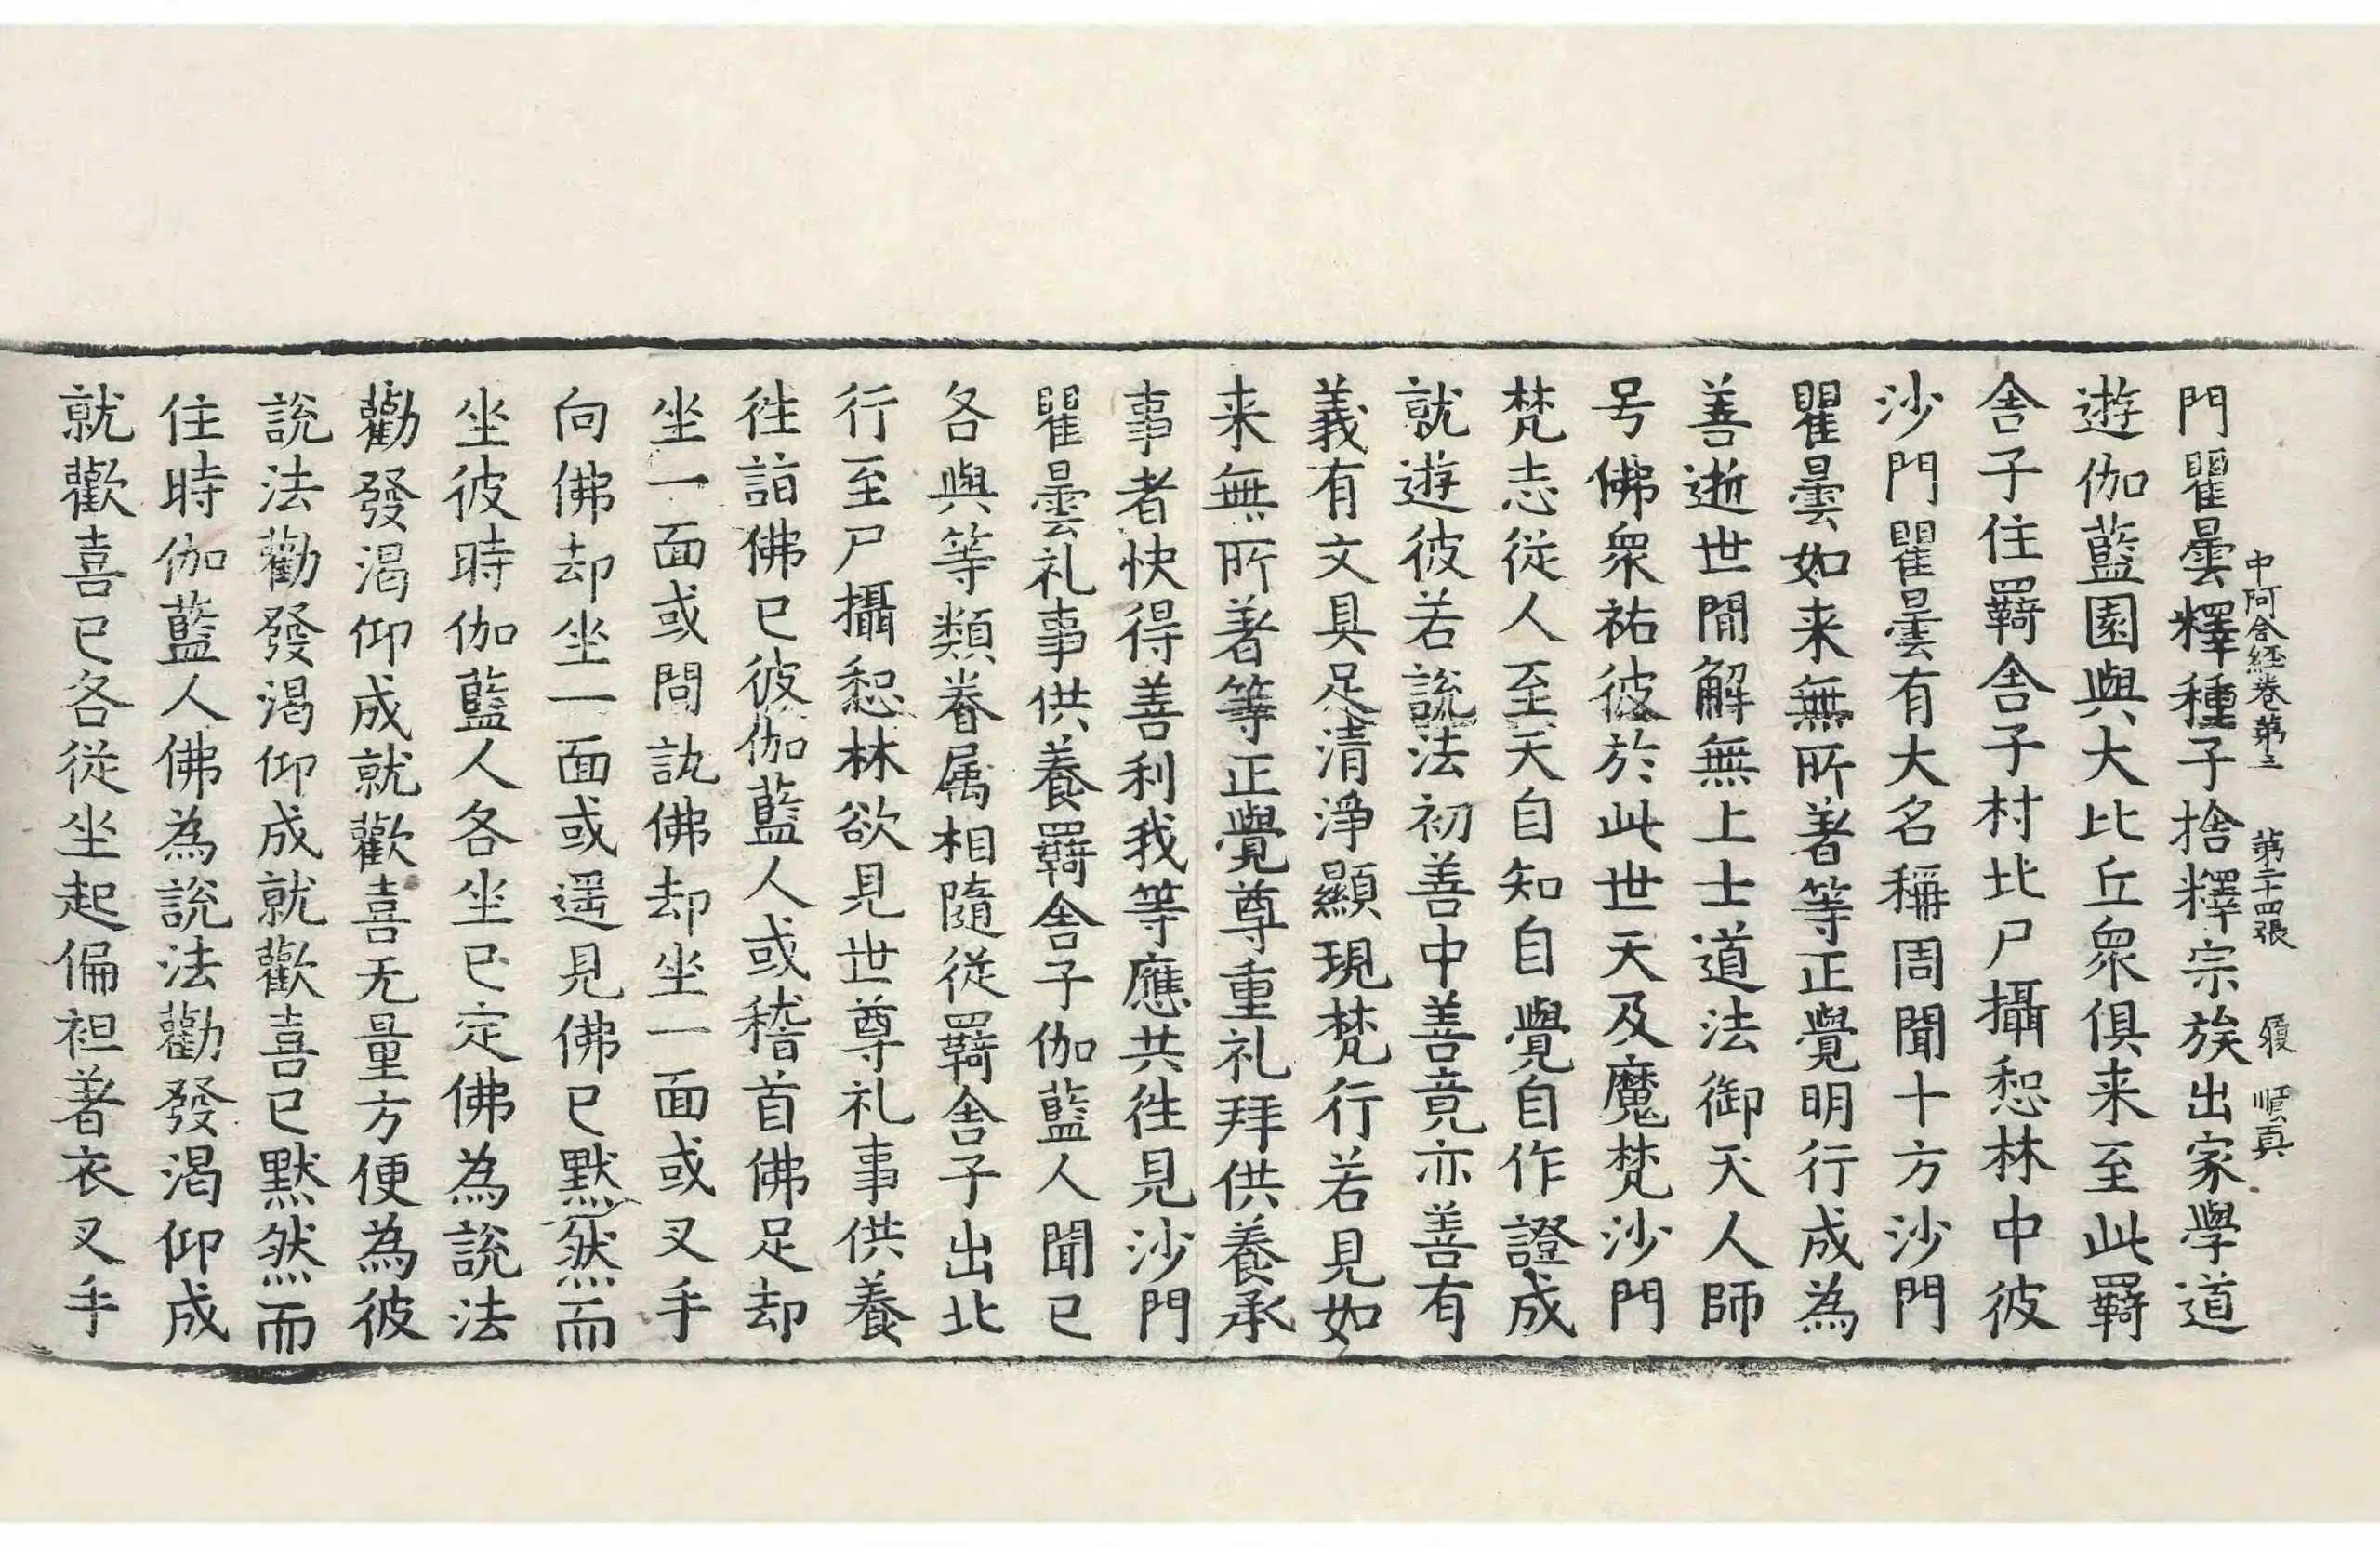 中阿含経卷第三 第二十四張 履 順真
門瞿曇釋種子捨釋宗族出家學道
遊伽藍園與大比丘衆俱来至此羇
舍子住羇舍子村北尸攝惒林中彼
沙門瞿曇有大名稱周聞十方沙門
瞿曇如来無所著等正覺明行成為
善逝世間解無上士道法御天人師
号佛衆祐彼於此世天及魔梵沙門
梵志從人至天自知自覺自作證成
就遊彼若說法初善中善竟亦善有
義有文具足清淨顯現梵行若見如
来無所著等正覺尊重礼拜供養承
事者快得善利我等應共往見沙門
瞿曇礼事供養羇舍子伽藍人聞已
各與等類眷属相隨從羇舍子出北
行至尸攝惒林欲見世尊礼事供養
往詣佛已彼伽藍人或稽首佛足却
坐一面或問訊佛却坐一面或叉手
向佛却坐一面或遥見佛已默然而
坐彼時伽藍人各坐已定佛為說法
勸發渴仰成就歡喜无量方便為彼
說法勸發渴仰成就歡喜已默然而
住時伽藍人佛為說法勸發渴仰成
就歡喜已各從坐起偏袒著衣叉手